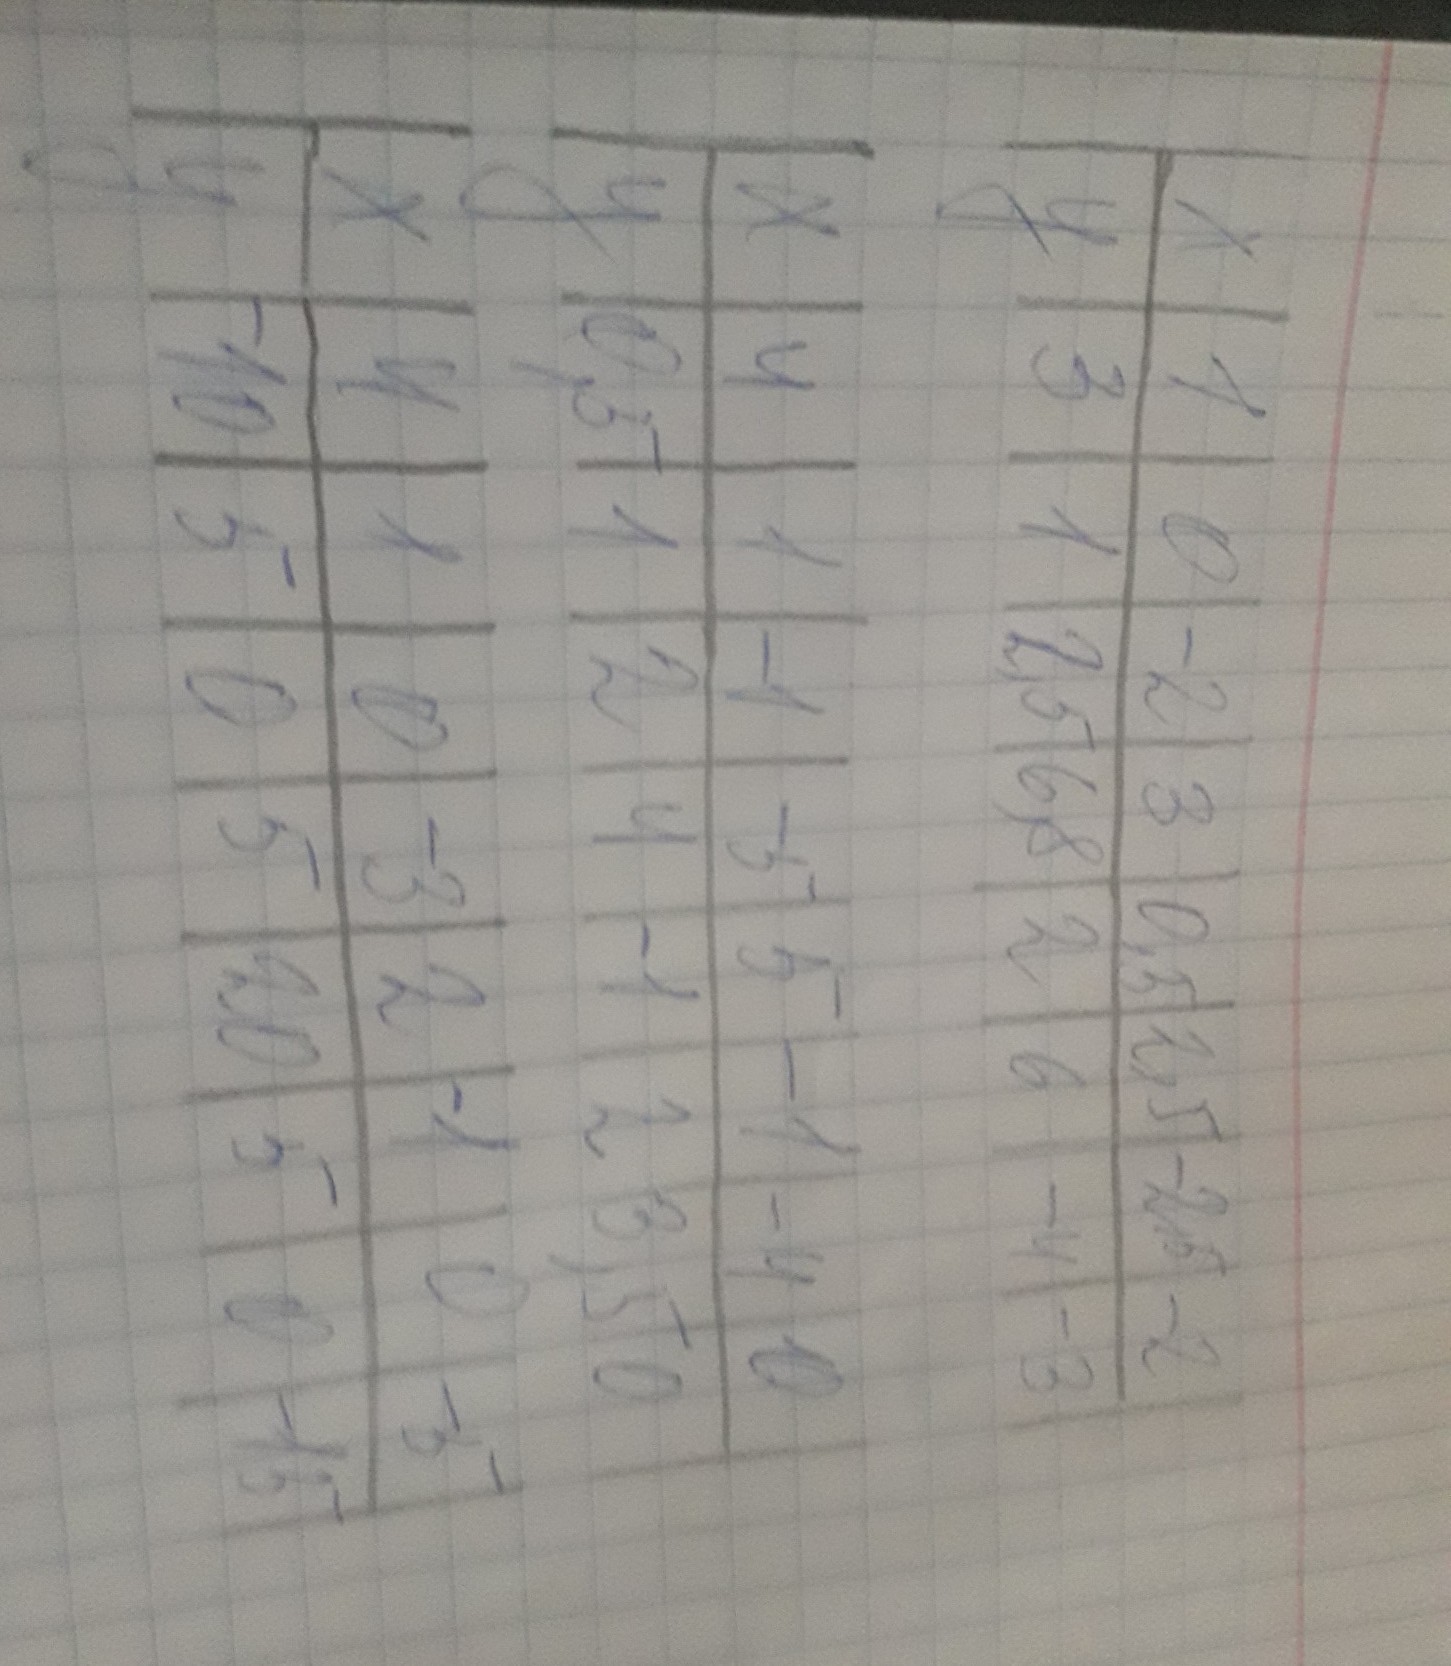 x 1 0 -2 3 0,5 2,5 -2,5 -2
y 3 1 2,5 6,8 2 6 -4 -3
x 4 1 -1 -5 5 -1 -4 0
y 0,5 1 2 4 -1 2 3,5 0
x 4 1 0 -3 2 -1 0 -5
y -10 5 0 5 20 5 0 -15